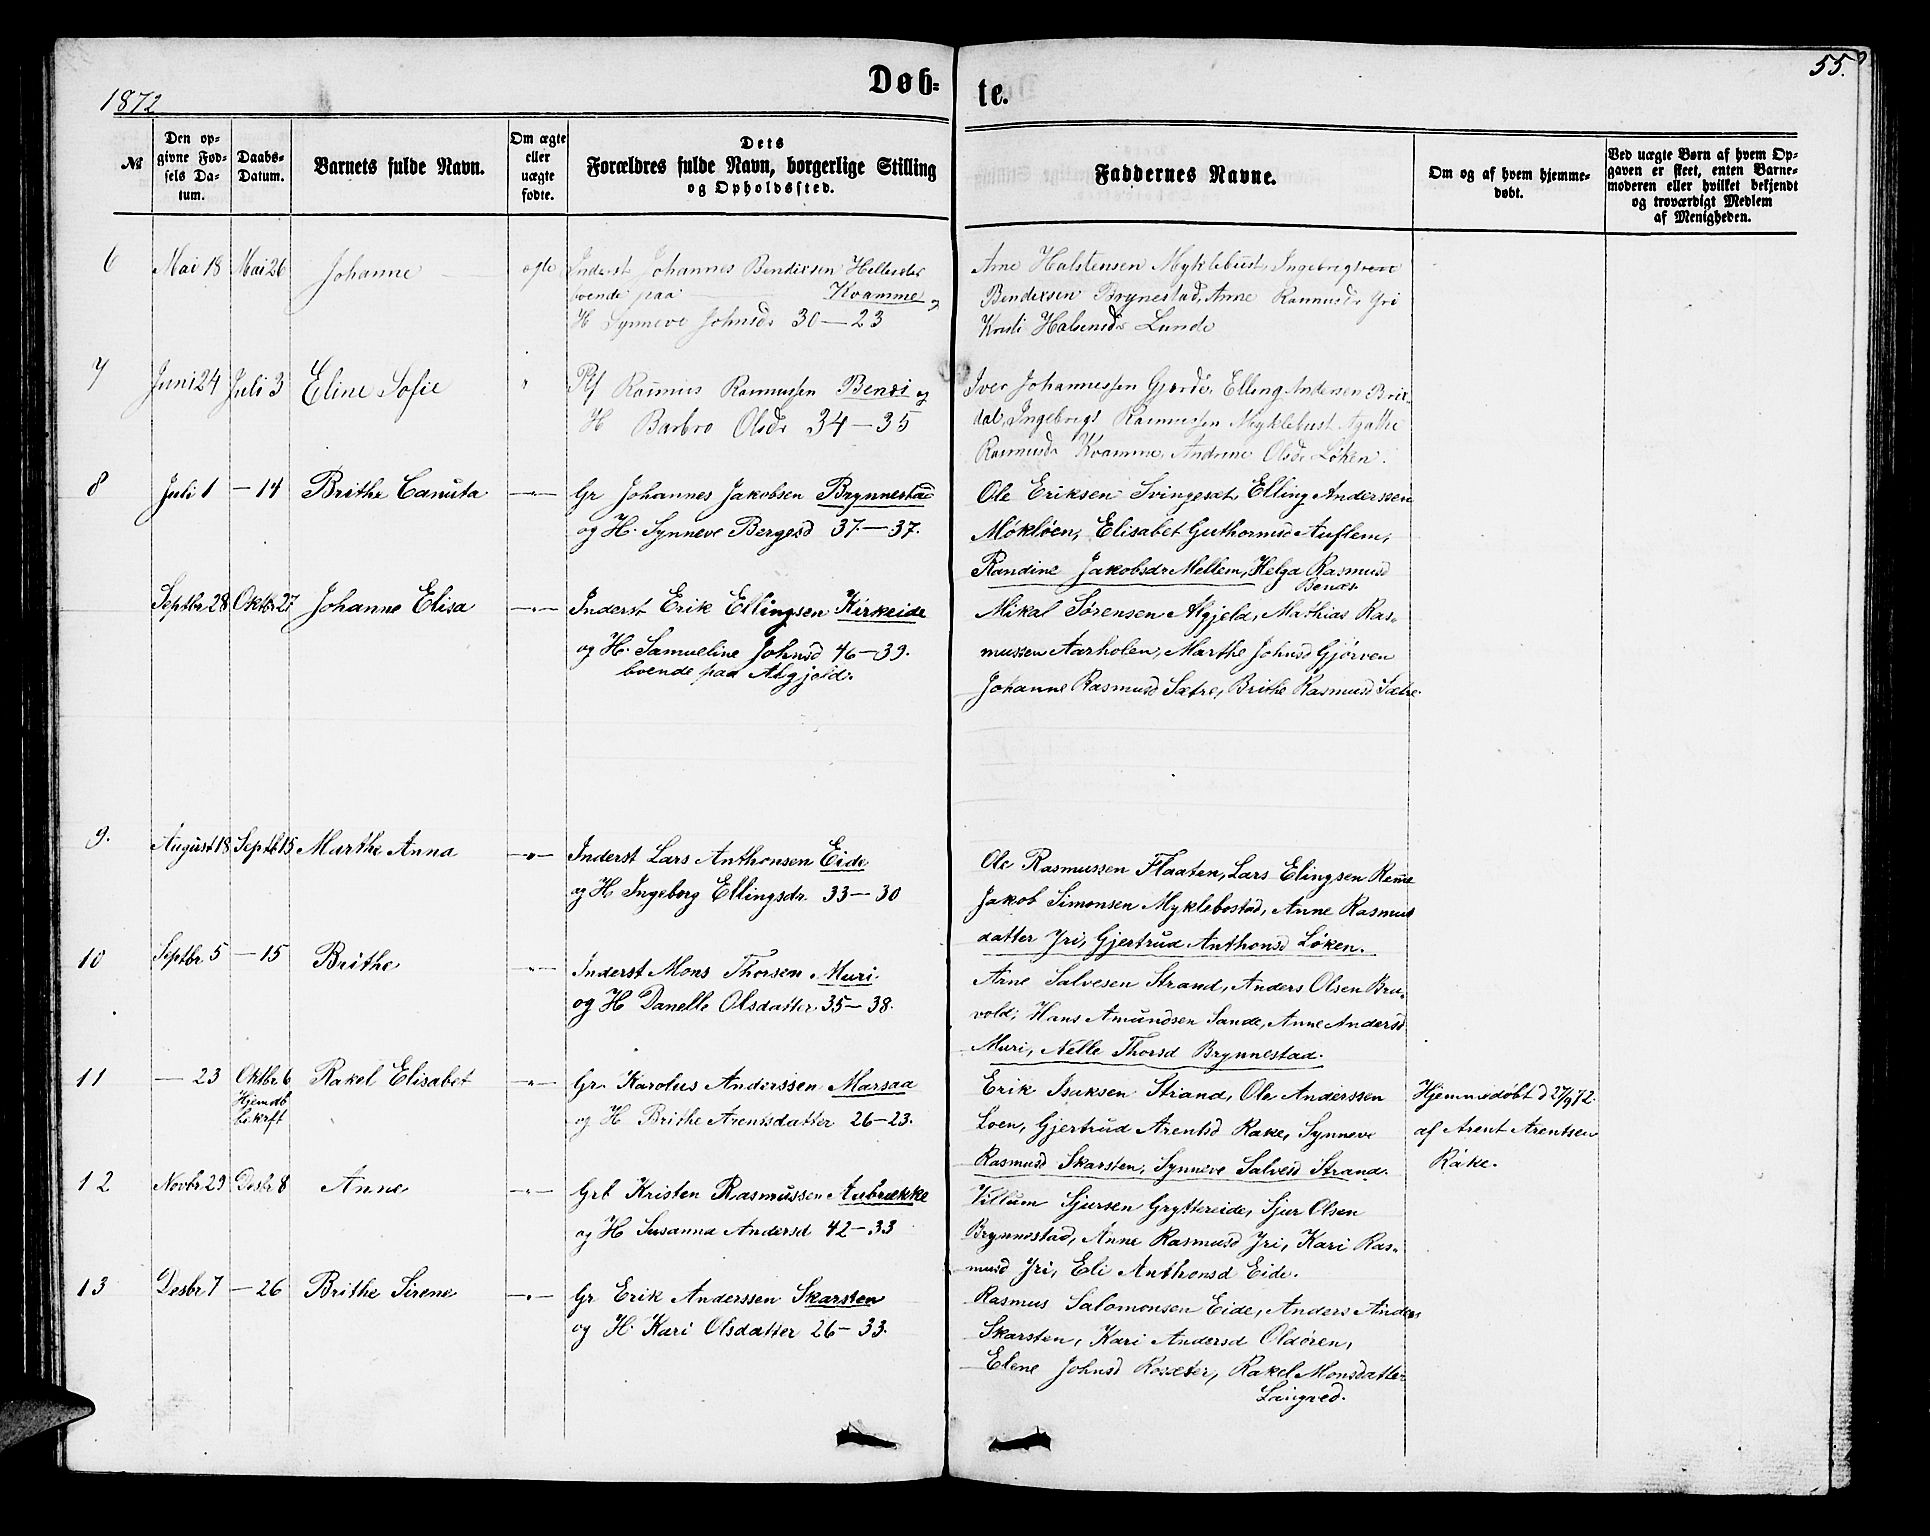 1872
Døb-
te.
55.
№
Den opgivne Fødsels Datum.
Daabs-Datum.
Barnets fulde Navn.
Om ægte eller uægte fødte.
Dets
Forældres fulde Navn, borgerlige Stilling
og Opholdssted.
Faddernes Navne.
Om og af hvem hjemmedøbt.
Ved uægte Børn af hvem Opgaven er skeet, enten Barnemoderen eller hvilket bekjendt og troværdigt Medlem af Menigheden.
6 Mai 18 Mai 26 Johanne ægte Inderst Johannes Bendixsen
boende paa Kvamme og
H Synneve Johnsdr 30 — 23
Arne Halstensen Myklebust, Ingebrigt
Bendixsen Brynestad, Anne Rasmusdr Yri
Lunde
7 Juni 24 Juli 3 Eline Sofie " Pf Rasmus Rasmussen Benæs og
H Barbro Olsdr 34 — 35
Iver Johannessen Gjerde, Elling Andersen Brix-
dal, Ingebrigt Rasmussen Myklebust Agathe
Rasmusdr Kvamme, Andrine Olsdr Løken.
8 Juli 1 — 14 Brithe Canuta — " — Gr Johannes Jakobsen Brynnestad
og H. Synneve Bergesd 37 — 37.
Ole Eriksen Svingeset, Elling Anderssen
Mykløen, Elisabet Guthormsd Auflem,
Randine Jakobsdr Mellem, Helga Rasmusd
Benæs
Septbr 28 Oktbr 27 Johanne Elisa — " — Inderst Erik Ellingsen Kirkeide
og H. Samueline Johnsd 46 — 39.
boende paa Algjeld.
Mikal Sørensen Algjeld, Mathias Ras-
mussen Aarholen, Marthe Johnsd Gjørven
Johanne Rasmusd Sætre, Brithe Rasmusd Sætre.
9. August 18 Septb 15 Marthe Anna — " — Inderst Lars Anthonsen Eide
og H Ingeborg Ellingsdr. 33 — 30
Ole Rasmussen Flaaten, Lars Elingsen Remme
Jakob Simonsen Myklebostad, Anne Rasmus
datter Yri, Gjertrud Anthonsd Løken.
10 Septbr 5 — 15 Brithe — " — Inderst Mons Thorsen Muri.
og H Danelle Olsdatter 35 — 38.
Arne Salvesen Strand, Anders Olsen Bru-
vold; Hans Amundsen Sande, Anne Andersd
Muri, Nelle Thorsd Brynnestad.
11 — 23 Oktbr 6 Rakel Elisabet — " — Gr. Karolus Anderssen Marsaa
Hjemdb
bekrft
og H Brithe Arentsdatter 26 — 23.
Erik Isaksen Strand, Ole Anderssen
Loen, Gjertrud Arentsd Rake, Synneve
Rasmusd Skarsten, Synneve Salvesd Strand.
Hjemmedøbt d 27/9 72.
af Arent Arentsen
Rake.
12 Novbr 29 Desbr 8 Anne — " — Grb Kristen Rasmussen Aabrække
og H Susanna Andersd 42 — 33
Villum Sjursen Gryttereide, Sjur Olsen
Brynnestad, Anne Rasmusd Yri, Kari Ras-
musd Yri, Eli Anthonsd Eide.
13 Desbr 7 — 26 Brithe Sirene — " — Gr Erik Anderssen Skarsten
og H. Kari Olsdatter 26 — 33.
Rasmus Salomonsen Eide, Anders Anders
Skarsten, Kari Andersd Oldøren,
Elene Johnsd Rosæter, Rakel Monsdatter